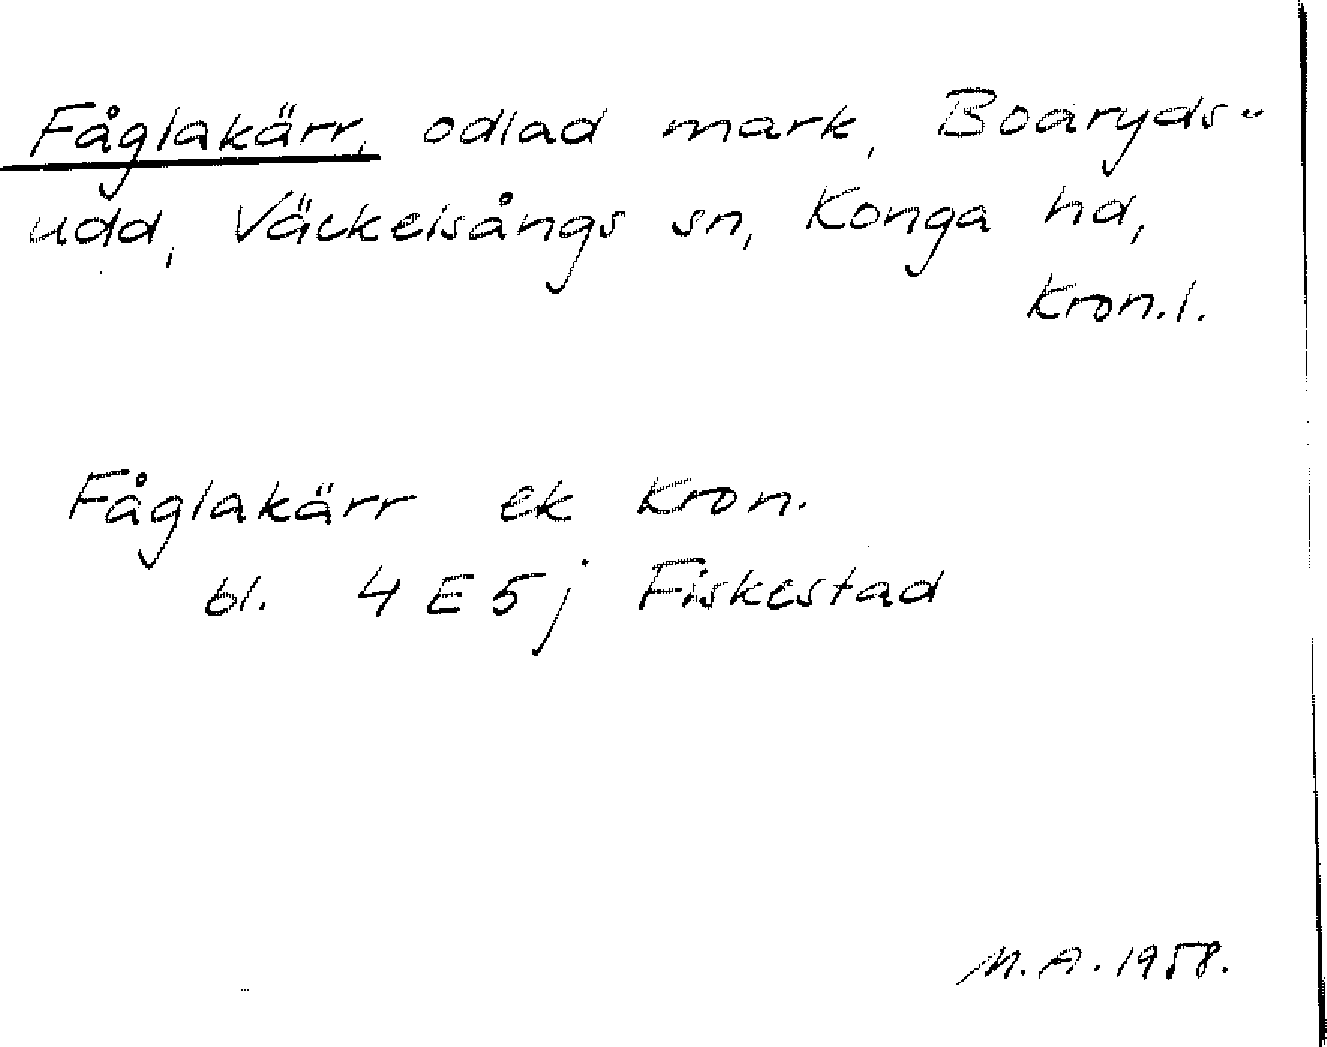 Fåglakärr, odlad mark, Boaryds-
udd, Väckelsångs sn, Konga hd,
Kron.l.
Fåglakärr ek Kron.
bl. 4 E 5 j Fiskestad
M.A. 1958.